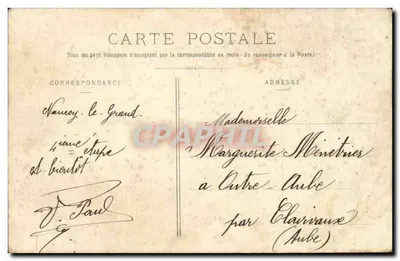 CARTE POSTALE
Tous les pays étrangers n'acceptent pas la correspondance au recto. (Se renseigner à la Poste)
CORRESPONDANCE
ADRESSE
Nancoy-le-Grand
4ième étape
et bientôt
P. Paul
Mademoiselle
Marguerite Ménétrier
a Outre-Aube
par Clairvaux
(Aube)
CPARAMA